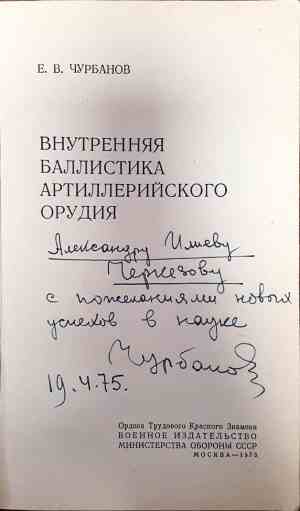 Е. В. ЧУРБАНОВ
ВНУТРЕННЯЯ
БАЛЛИСТИКА
АРТИЛЛЕРИЙСКОГО
ОРУДИЯ
Александру Илиеву
Черкезову
с пожеланиями новых
успехов в науке
Чурбанов
19.4.75.
Ордена Трудового Красного Знамени
ВОЕННОЕ ИЗДАТЕЛЬСТВО
МИНИСТЕРСТВА ОБОРОНЫ СССР
МОСКВА—1975